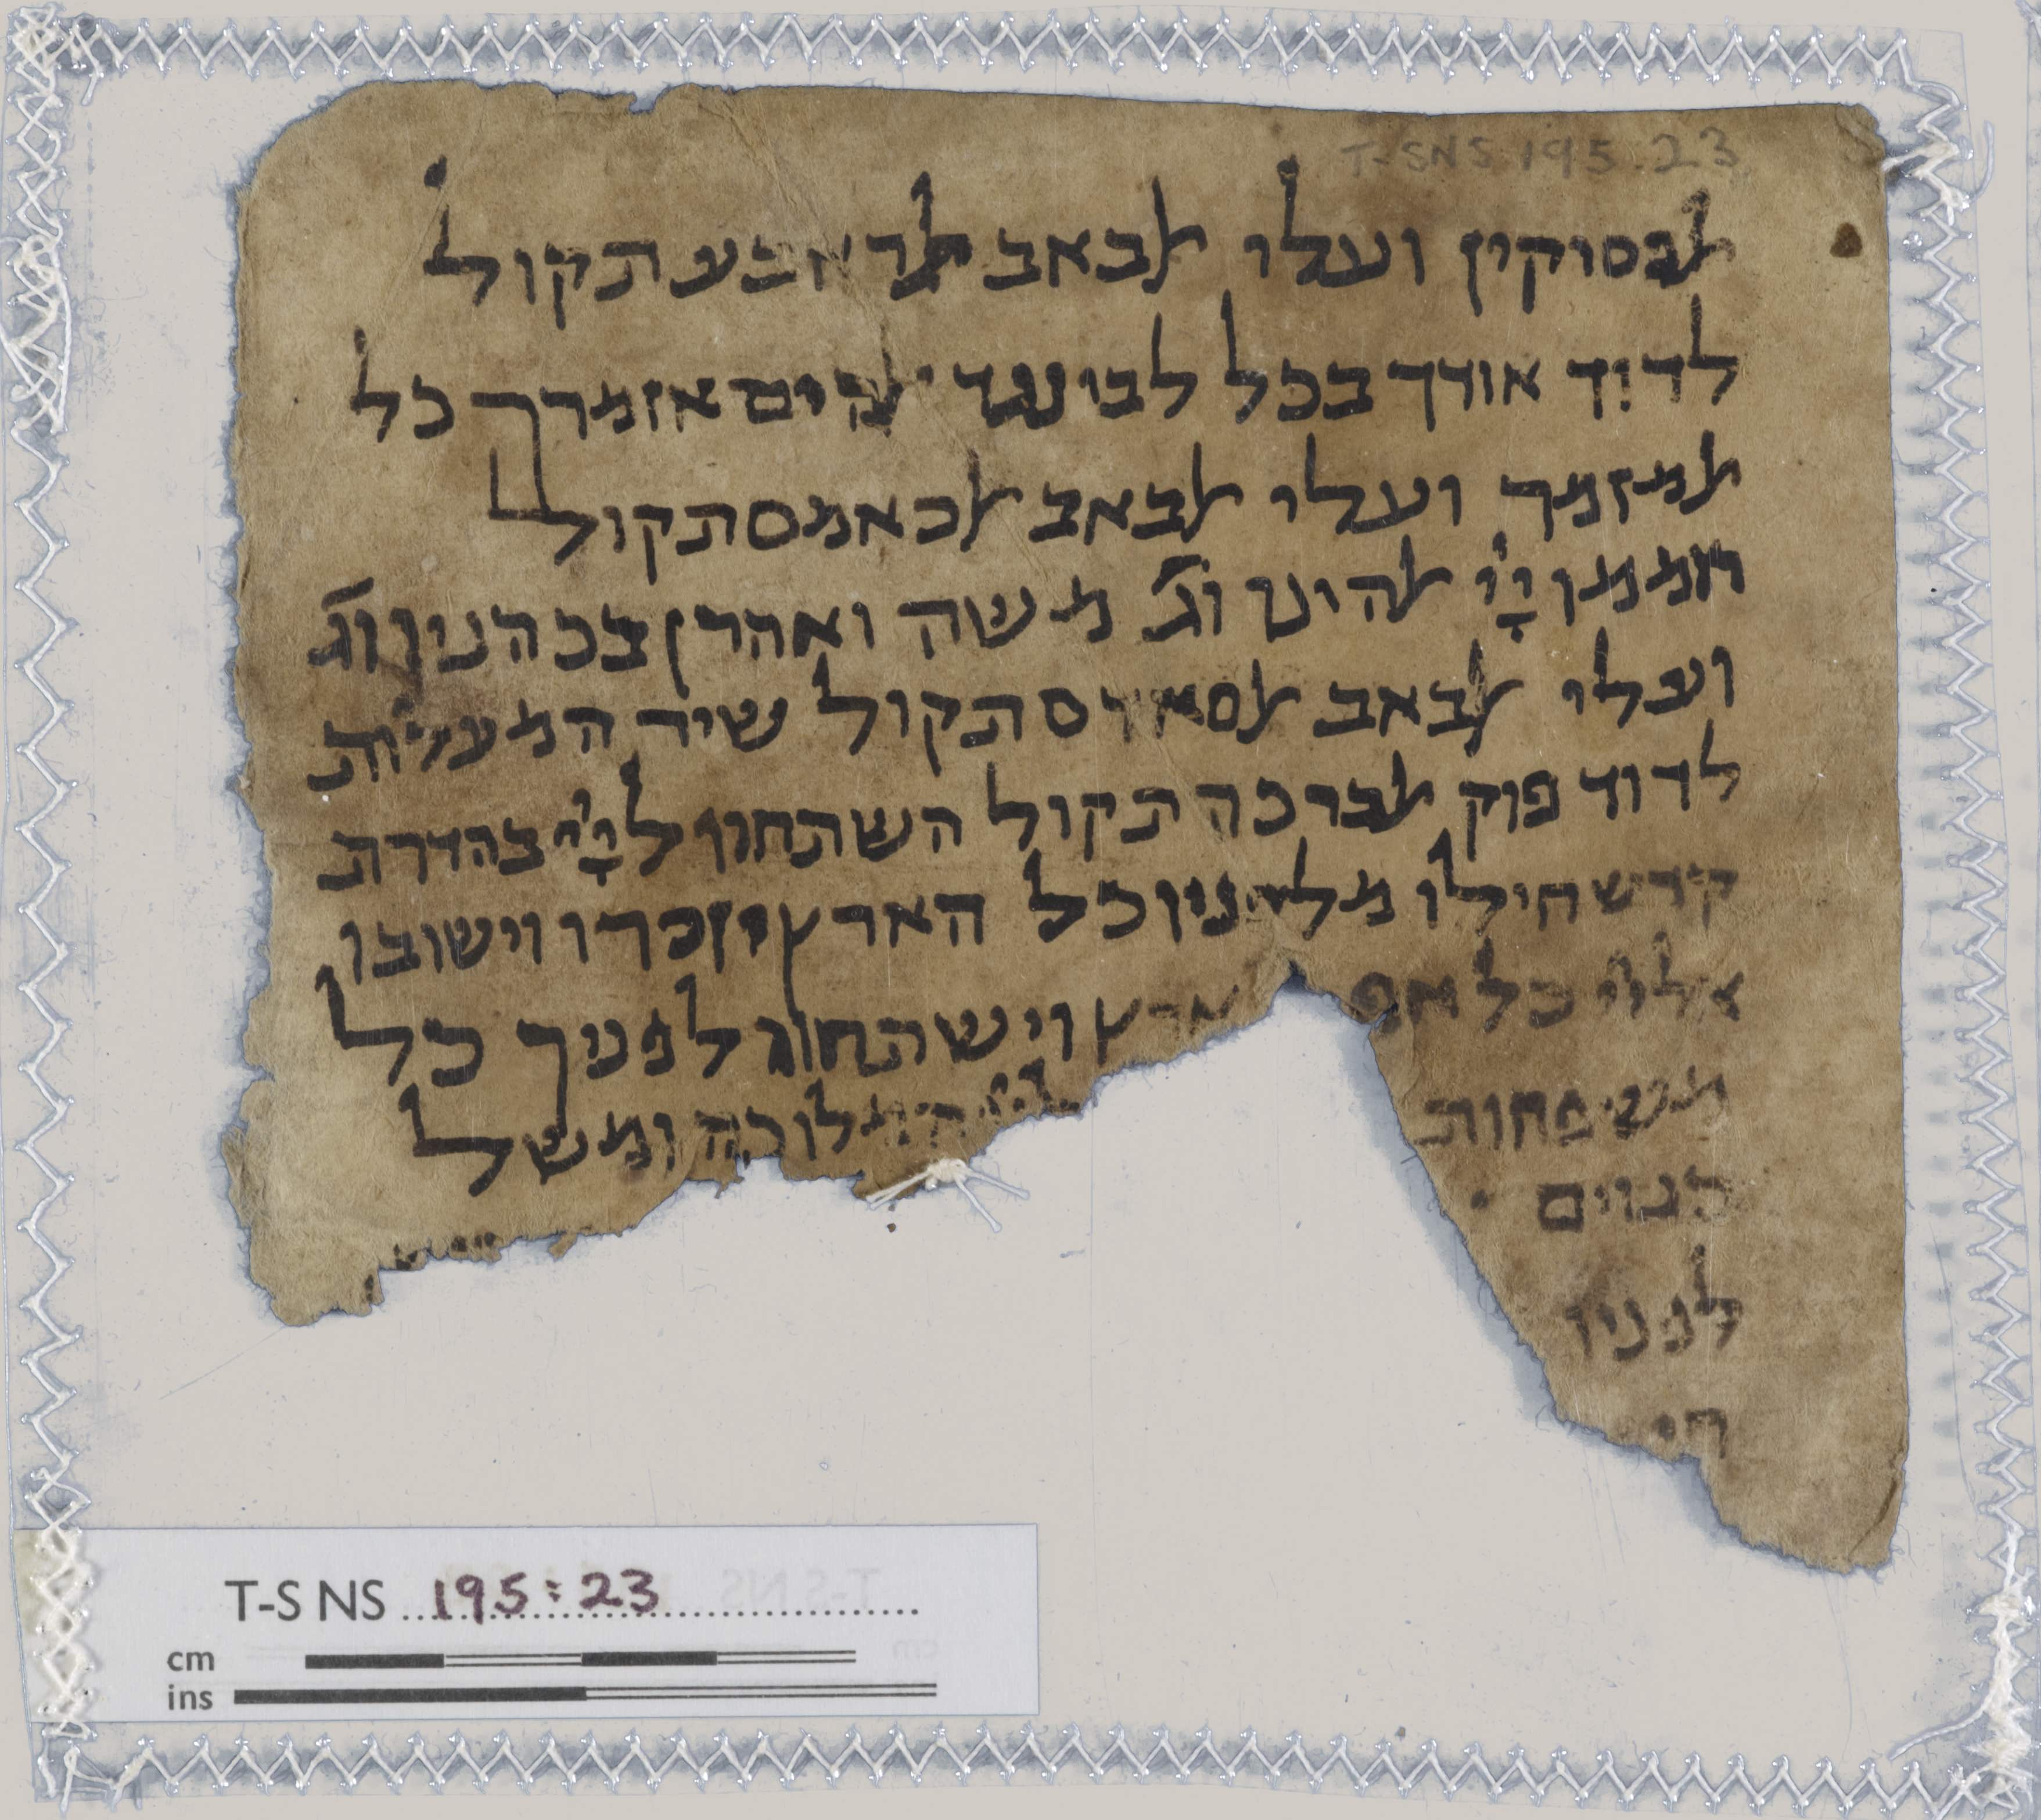 T-S NS 195.23
ﭏפסוקין ועלי ﭏבאב ﭏראבע תקול
לדוד אודך בכל לבי נגד ﭏהים אזמרך כל
ﭏמזמר ועלי ﭏבאב ﭏכאמס תקול
רוממו ייי ﭏהינו וג משה ואהרן בכהניו וג
ועלי ﭏבאב ﭏסאדס תקול שיר המעלות
לדוד פוק ﭏברכה תקול השתחוו לייי בהדרת
קדש חילו מלפניו כל הארץ יזכרו וישובו
אל ייי כל ארץ וישתחוו לפניך כל
משפחות המלוכה ומשל
בגוים
לפניו
T-S NS 195:23
cm
ins